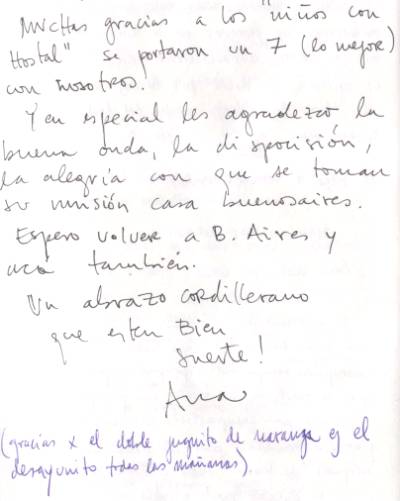 Muchas gracias a los "niños con
Hostal" se portaron un 7 (lo mejor)
con nosotros.
Y en especial les agradezco, la
buena onda, la dispocisión,
la alegría con que se toman
su misión casa buenosaires.
Espero volver a B. Aires y
acá también.
Un abrazo cordillerano
que esten Bien
Suerte!
Ana
(gracias x el doble juguito de naranja en el
desayunito todas las mañanas).